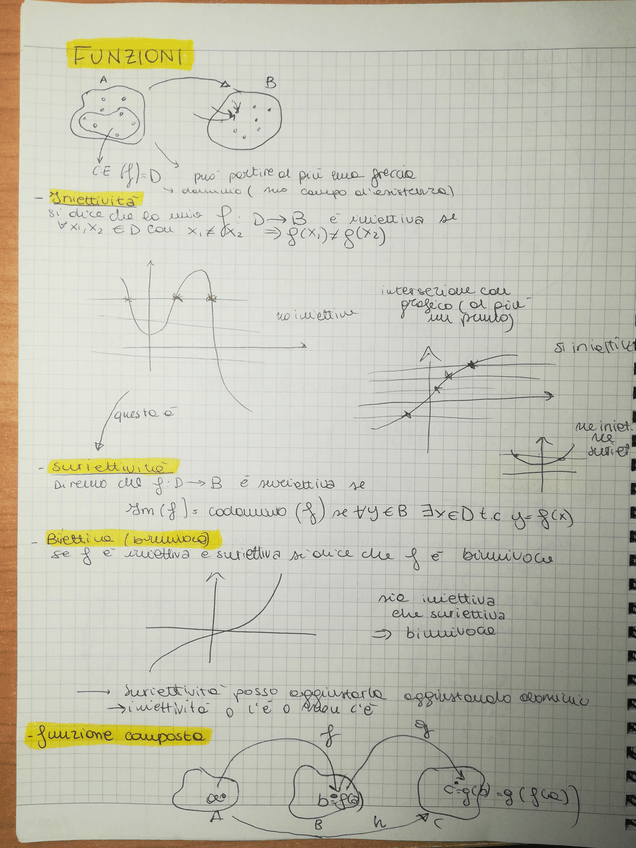 FUNZIONI
A B
C.E (f)=D può partire al più una freccia
→ dominio (suo campo d'esistenza)
- Iniettività
si dice che la mia f: D→B è iniettiva se
∀x₁,x₂ ∈ D con x₁≠x₂ ⇒ f(x₁)≠f(x₂)
intersezione con
grafico (al più
un punto)
no iniettiva
si iniettiva
questa è
ne iniet.
ne
suriet
- Suriettività
Diremo che f: D→B è suriettiva se
Im(f) = codominio (f) se ∀y∈B ∃x∈D t.c y=f(x)
- Biettiva (biunivoca)
se f è iniettiva e suriettiva si dice che f è biunivoca
sia iniettiva
che suriettiva
⇒ biunivoca
→ suriettività posso aggiustarla aggiustando dominio
→ iniettività o c'è o non c'è
- funzione composta
f g
a b=f(a) c=g(b)=g(f(a))
A B h C